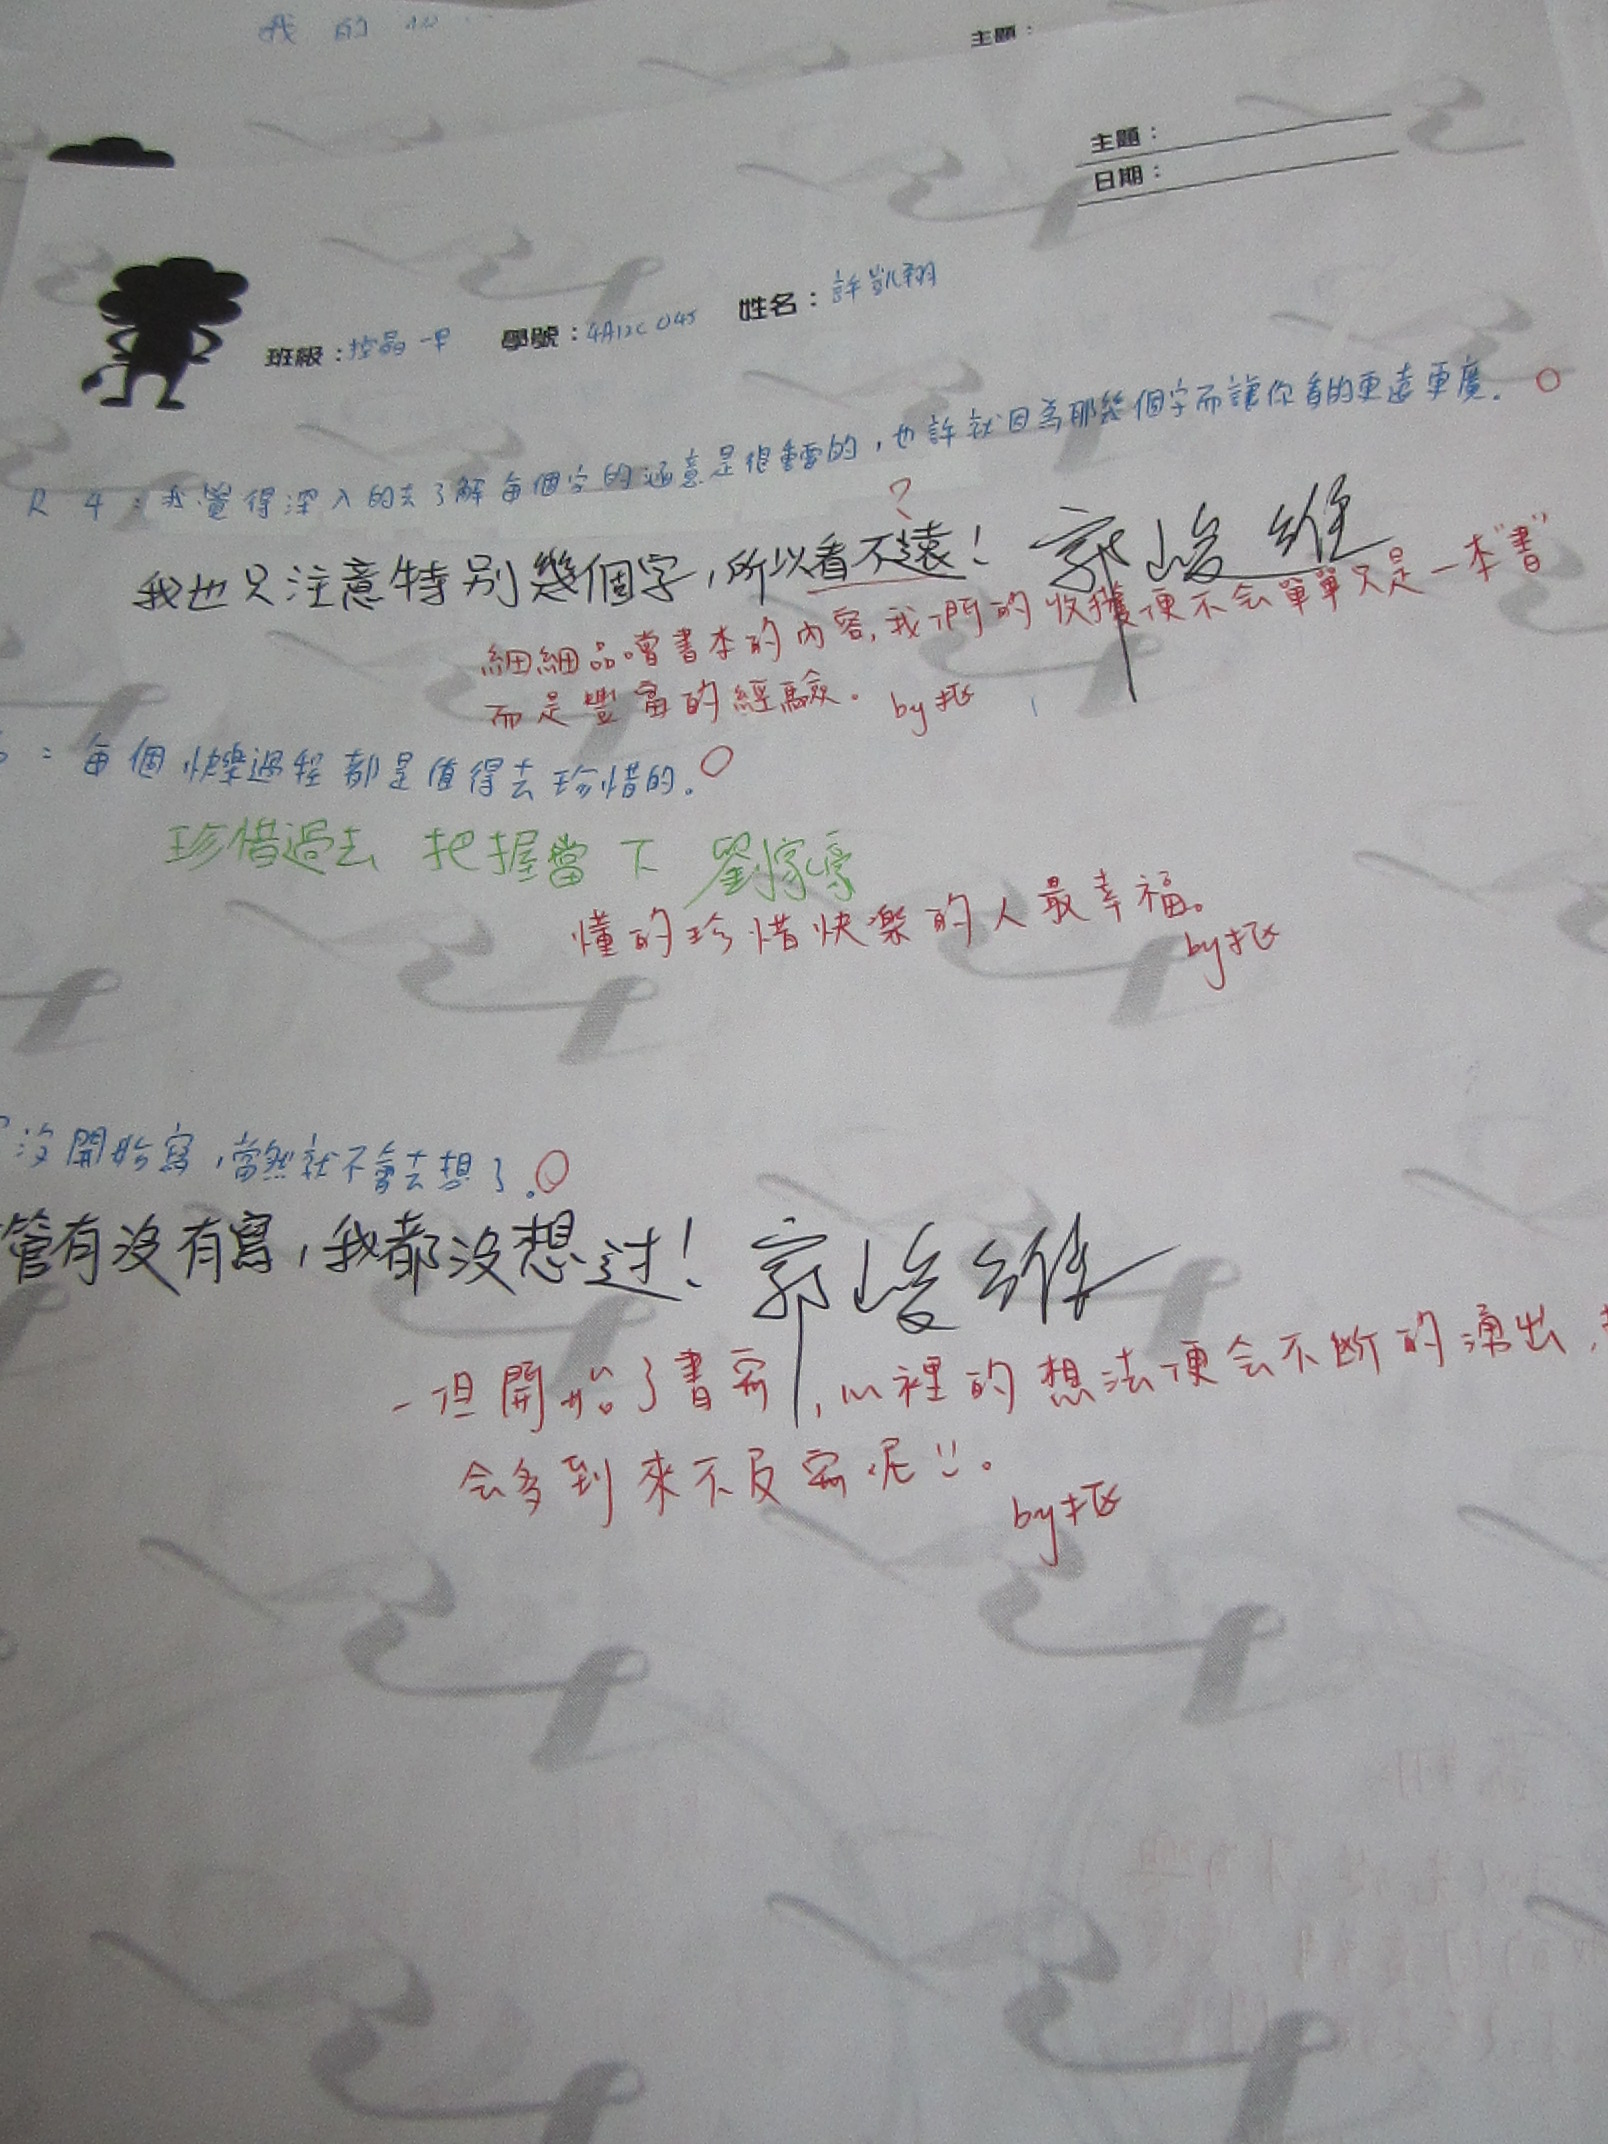 我 的
主題：
主題：
日期：
班級：控晶一甲 學號：4A12C045 姓名：許凱翔
R 4：我覺得深入的去了解每個字的涵意是很重要的，也許就因為那幾個字而讓你看的更遠更廣．
?
我也只注意特別幾個字，所以看不遠！ 郭峻維
細細品嚐書本的內容,我們的收穫便不会單單只是一本"書"
而是豐富的經驗。 by
：每個快樂過程都是值得去珍惜的．
珍惜過去 把握當下 劉家豪
懂的珍惜快樂的人最幸福。
by
沒開始寫，當然就不會去想了．
管有沒有寫，我都沒想过！ 郭峻維
一但開始了書寫,心裡的想法便会不断的湧出,
会多到來不及寫呢!!。
by